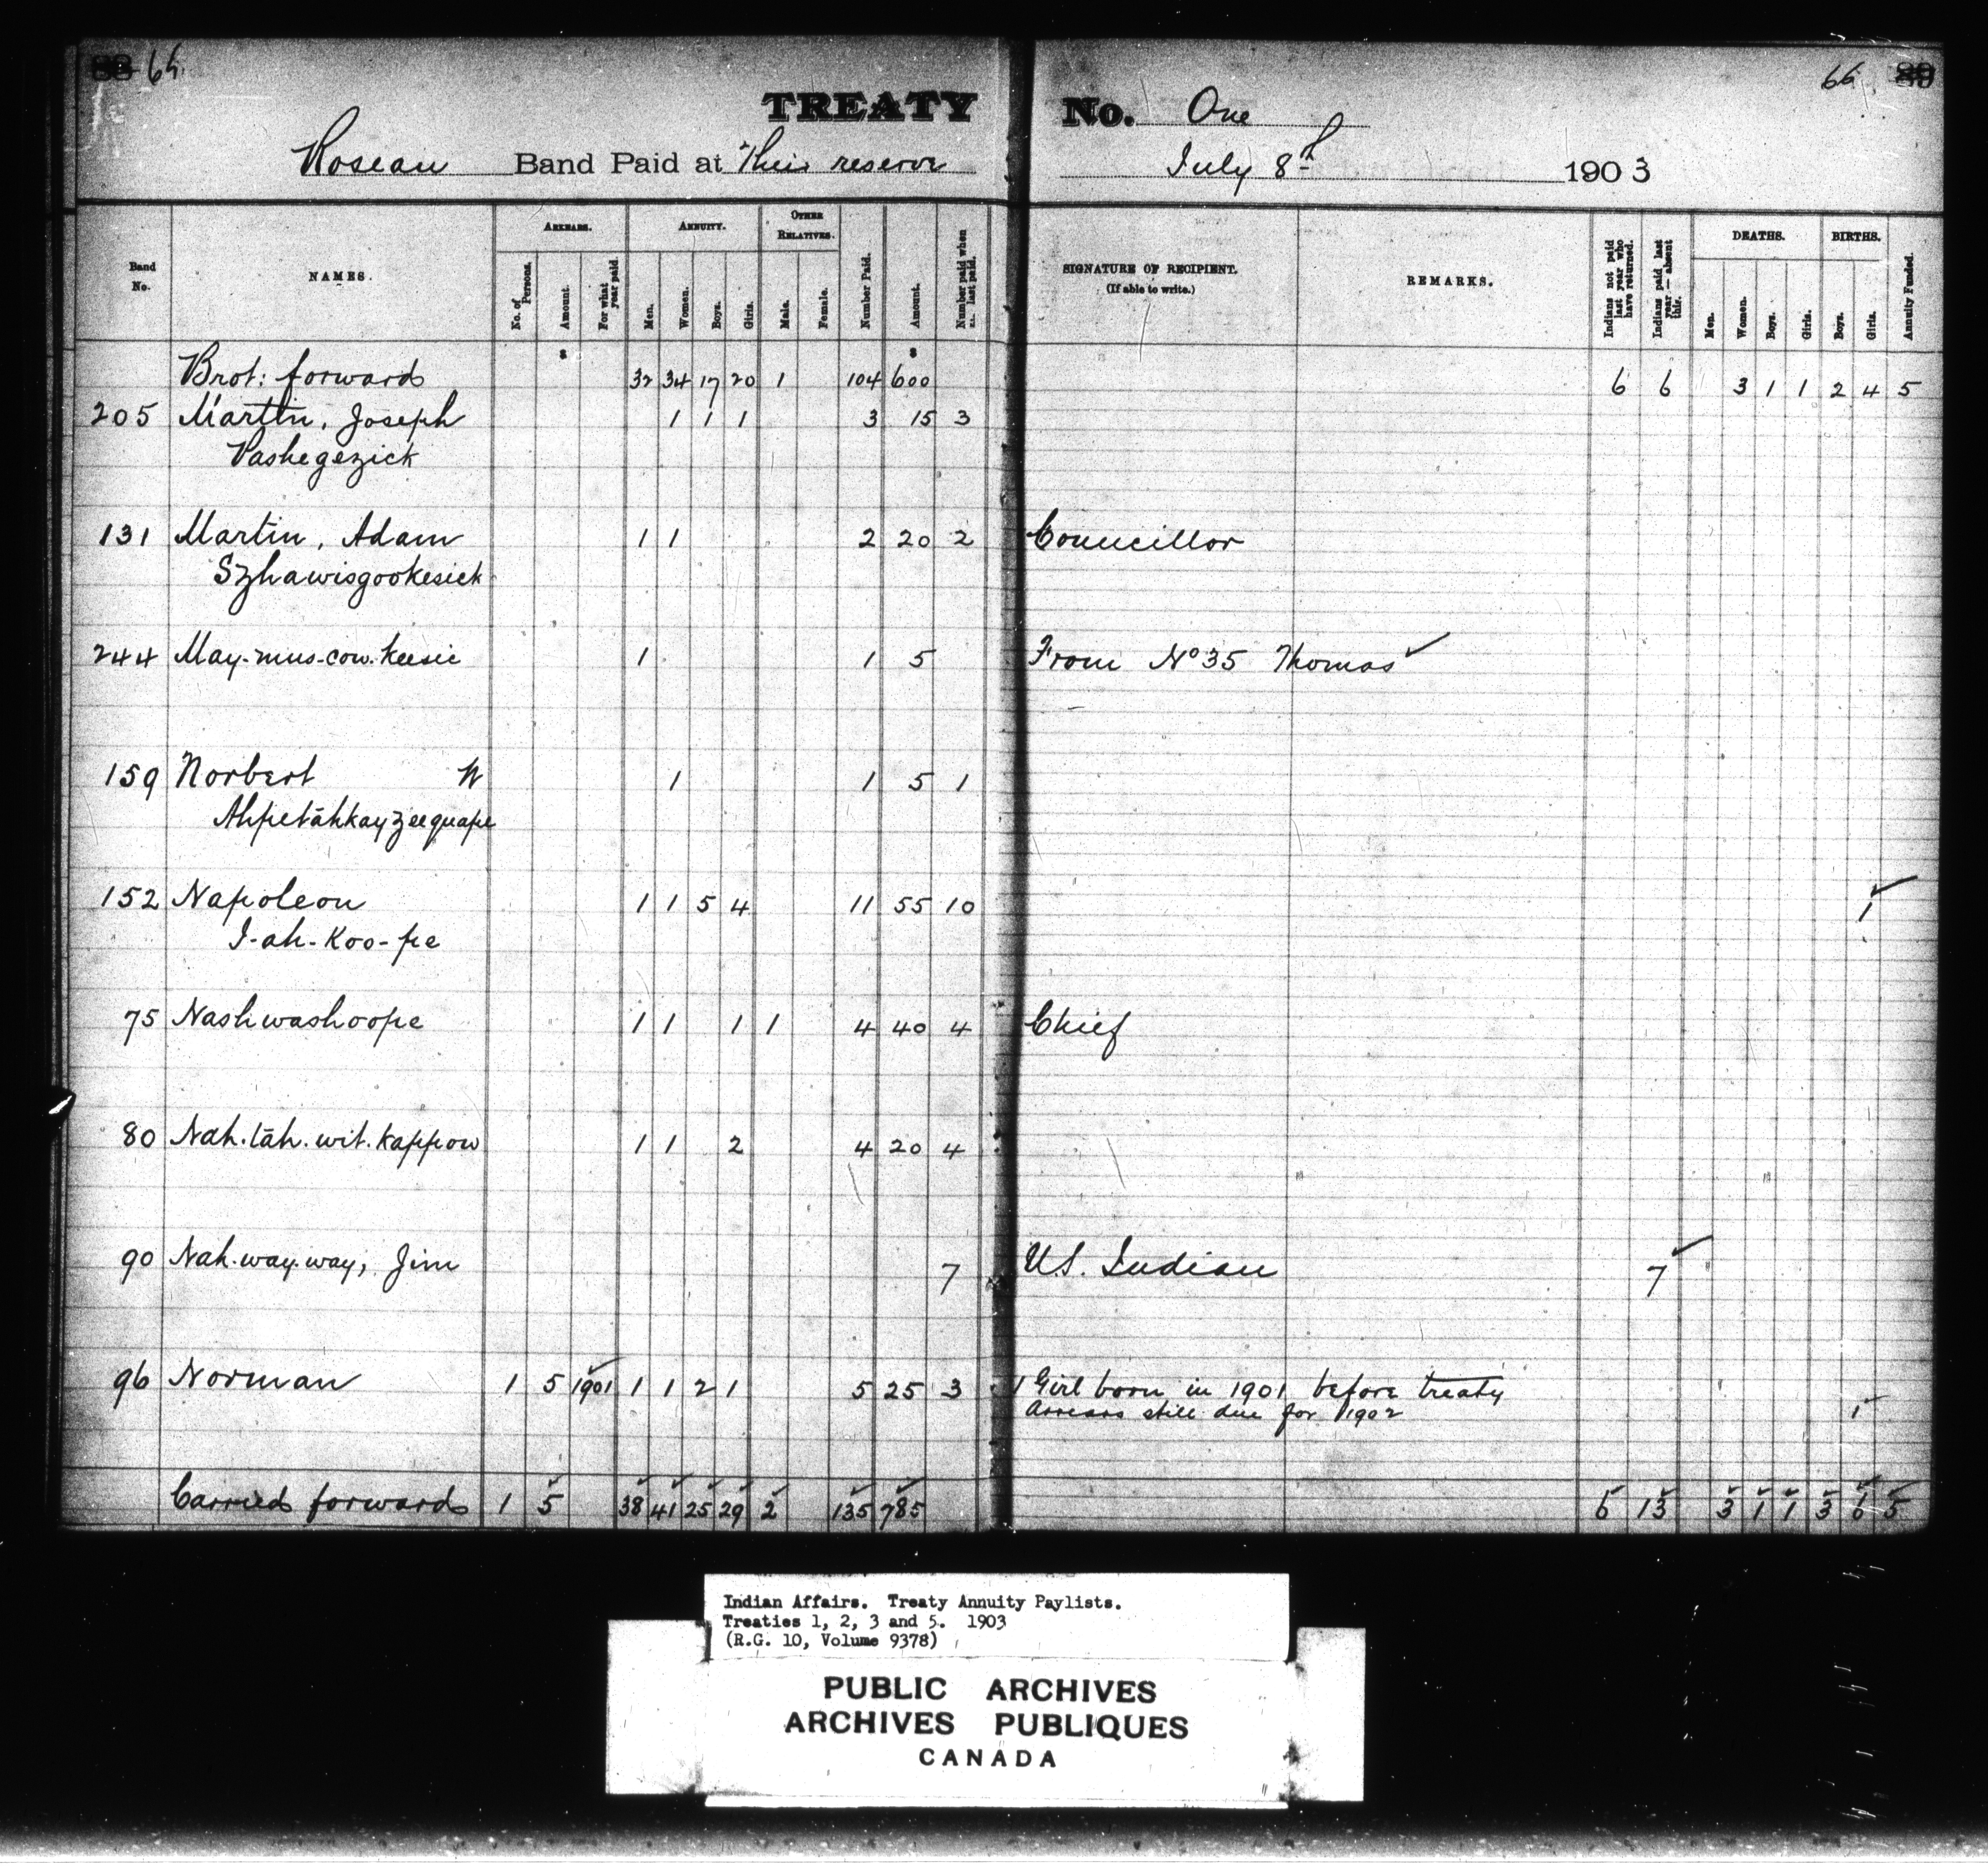 88 65 66 89
TREATY No. One
Roseau Band Paid at Their reserve July 8th 1903
Band No. NAMES. ARREARS. ANNUITY. OTHER RELATIVES. Number Paid. Amount. Number paid when last paid. SIGNATURE OF RECIPIENT. (If able to write.) REMARKS. Indians not paid last year who have returned. Indians paid last year — absent this. DEATHS. BIRTHS. Annuity Funded.
No. of Persons. Amount. For what year paid. Men. Women. Boys. Girls. Male. Female. Men. Women. Boys. Girls. Boys. Girls.
$ $
Brot: forward 32 34 17 20 1 104 600 6 6 3 1 1 2 4 5
205 Martin, Joseph 1 1 1 3 15 3
Pashegezick
131 Martin, Adam 1 1 2 20 2 Councillor
Szhawisgookesick
244 May-mus-cow-keesic 1 1 5 From No 35 Thomas ✓
159 Norbert W 1 1 5 1
Ahpetāhkayzeequape
152 Napoleon 1 1 5 4 11 55 10 1 ✓
I-ah-koo-pe
75 Nashwashoope 1 1 1 1 4 40 4 Chief
80 Nah.tāh.wit.kappow 1 1 2 4 20 4
90 Nah.way.way, Jim 7 U.S. Indian 7 ✓
96 Norman 1 5 1901 1 1 2 1 5 25 3 1 Girl born in 1901 before treaty
Arrears still due for 1902 1
Carried forward 1 5 38 41 25 29 2 135 785 6 13 3 1 1 3 6 5
Indian Affairs. Treaty Annuity Paylists.
Treaties 1, 2, 3 and 5. 1903
(R.G. 10, Volume 9378)
PUBLIC ARCHIVES
ARCHIVES PUBLIQUES
CANADA